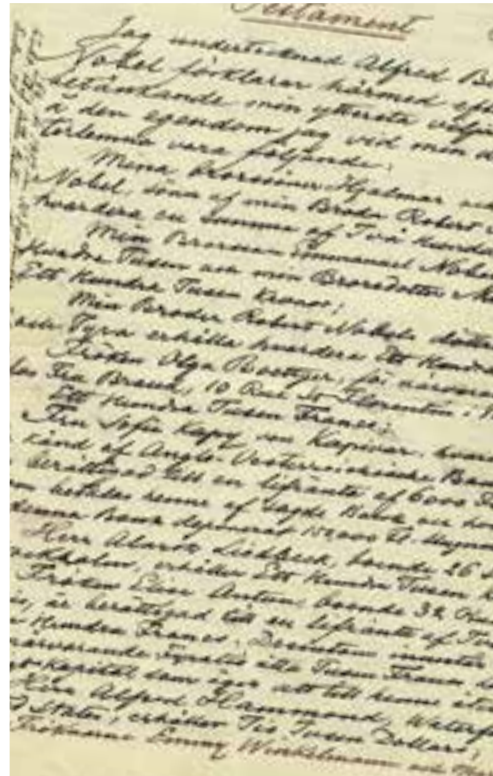 Testament
Jag undertecknad Alfred Be
Nobel förklarar härmed efte
betänkande min yttersta vilja
å den egendom jag vid min d
terlemna vara följande:
Mina brorsöner Hjalmar och
Nobel, söner af min Broder Robert N
hvardera en summa af Två Hundra
Min Brorson Emmanuel Nobel
Hundra Tusen och min Brorsdotter M
Ett Hundra Tusen Kronor;
Min Broder Robert Nobels döttrar
och Tyra erhålla hvardera Ett Hundra
Fröken Olga Boettger, för närvaran
Fru Brand, 10 Rue St Florentin i P
Ett Hundra Tusen Francs;
Fru Sofie Kapy von Kapivar, hvars
känd af Anglo-Oesterreichische Bank
berättigad till en lifränta af 6000 Fl
betalas henne af sagde Bank och hvar
denna Bank deponerat 150,000 Fl.
Herr Alarik Liedbeck, boende 26 S
Stockholm, erhåller Ett Hundra Tusen K
Fröken Elise Antun, boende 32 Rue
är berättigad till en lifränta af Två
Hundra Francs. Dessutom innestår
närvarande Fyratio åtta Tusen Francs
Kapital som äger att till henne åter
Herr Alfred Hammond, Waterf
States, erhåller Tio Tusen Dollars;
Fröknarna Emmy Winkelmann och Mar